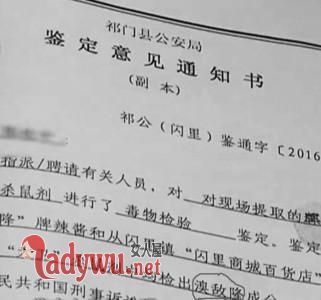 祁门县公安局
鉴定意见通知书
(副 本)
祁公 (闪里) 鉴通字 [2016
指派/聘请有关人员，对 对现场提取的
杀鼠剂 进行了 毒物检验 鉴定。鉴定
降”牌辣酱和从闪里镇“闪里商城百货店”
检出澳敌隆成
民共和国刑事诉
女人屋
Ladywu.net